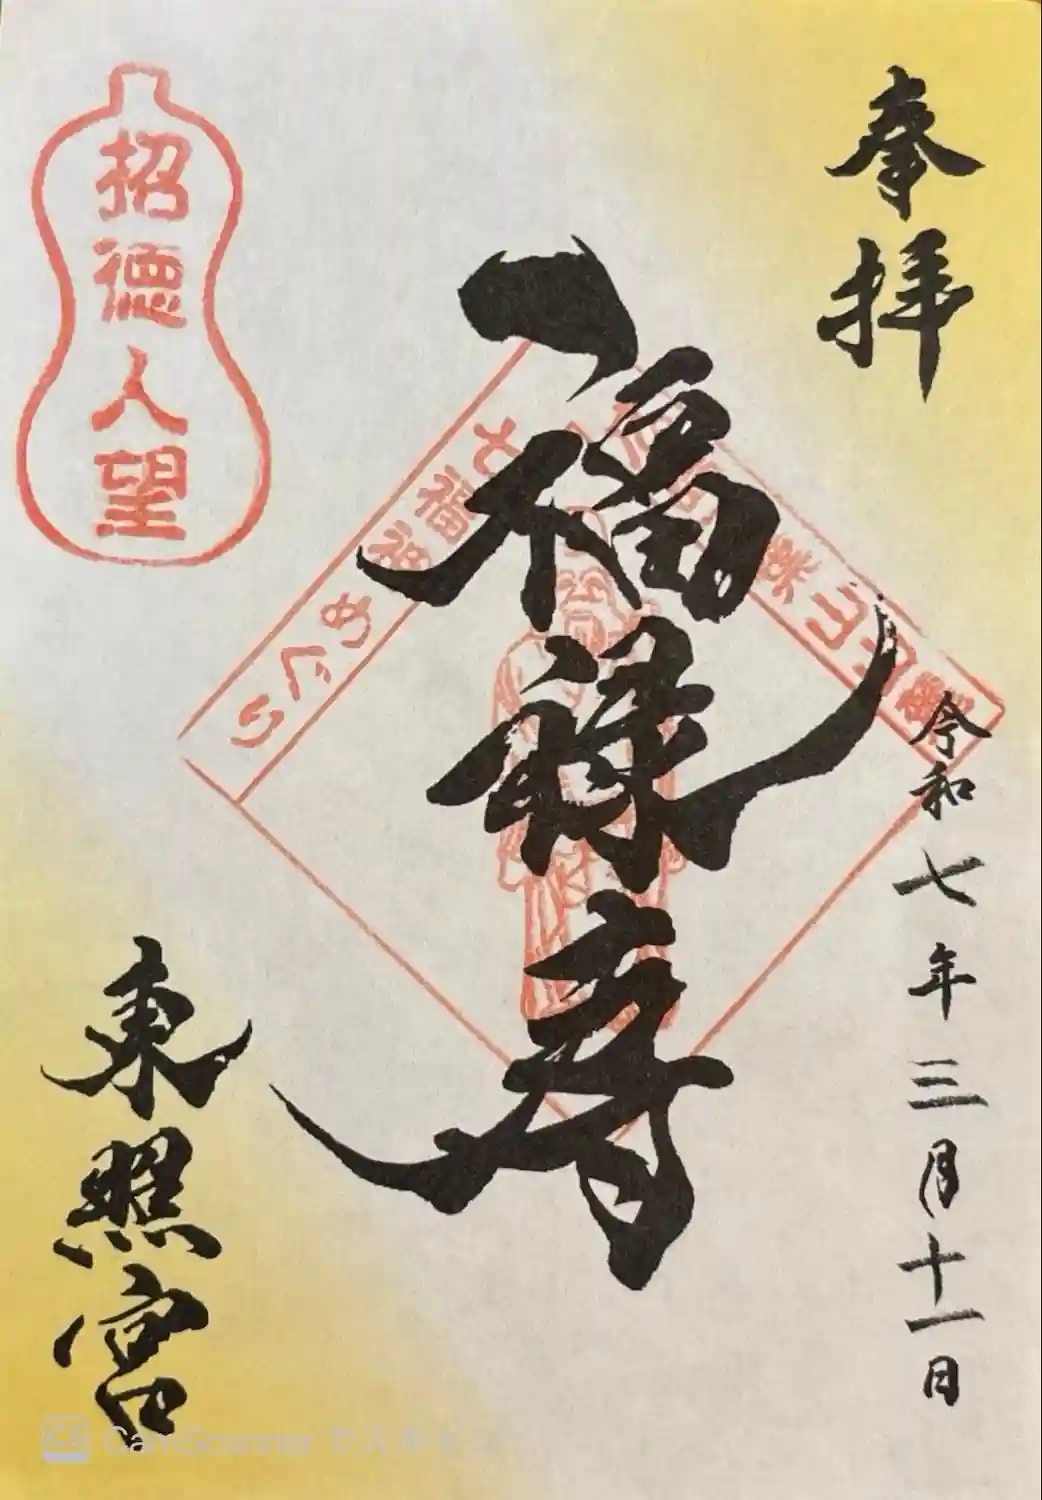 奉拝
福禄寿
令和七年三月十一日
東照宮
招徳人望
七福神めぐり
CamScanner でスキャン